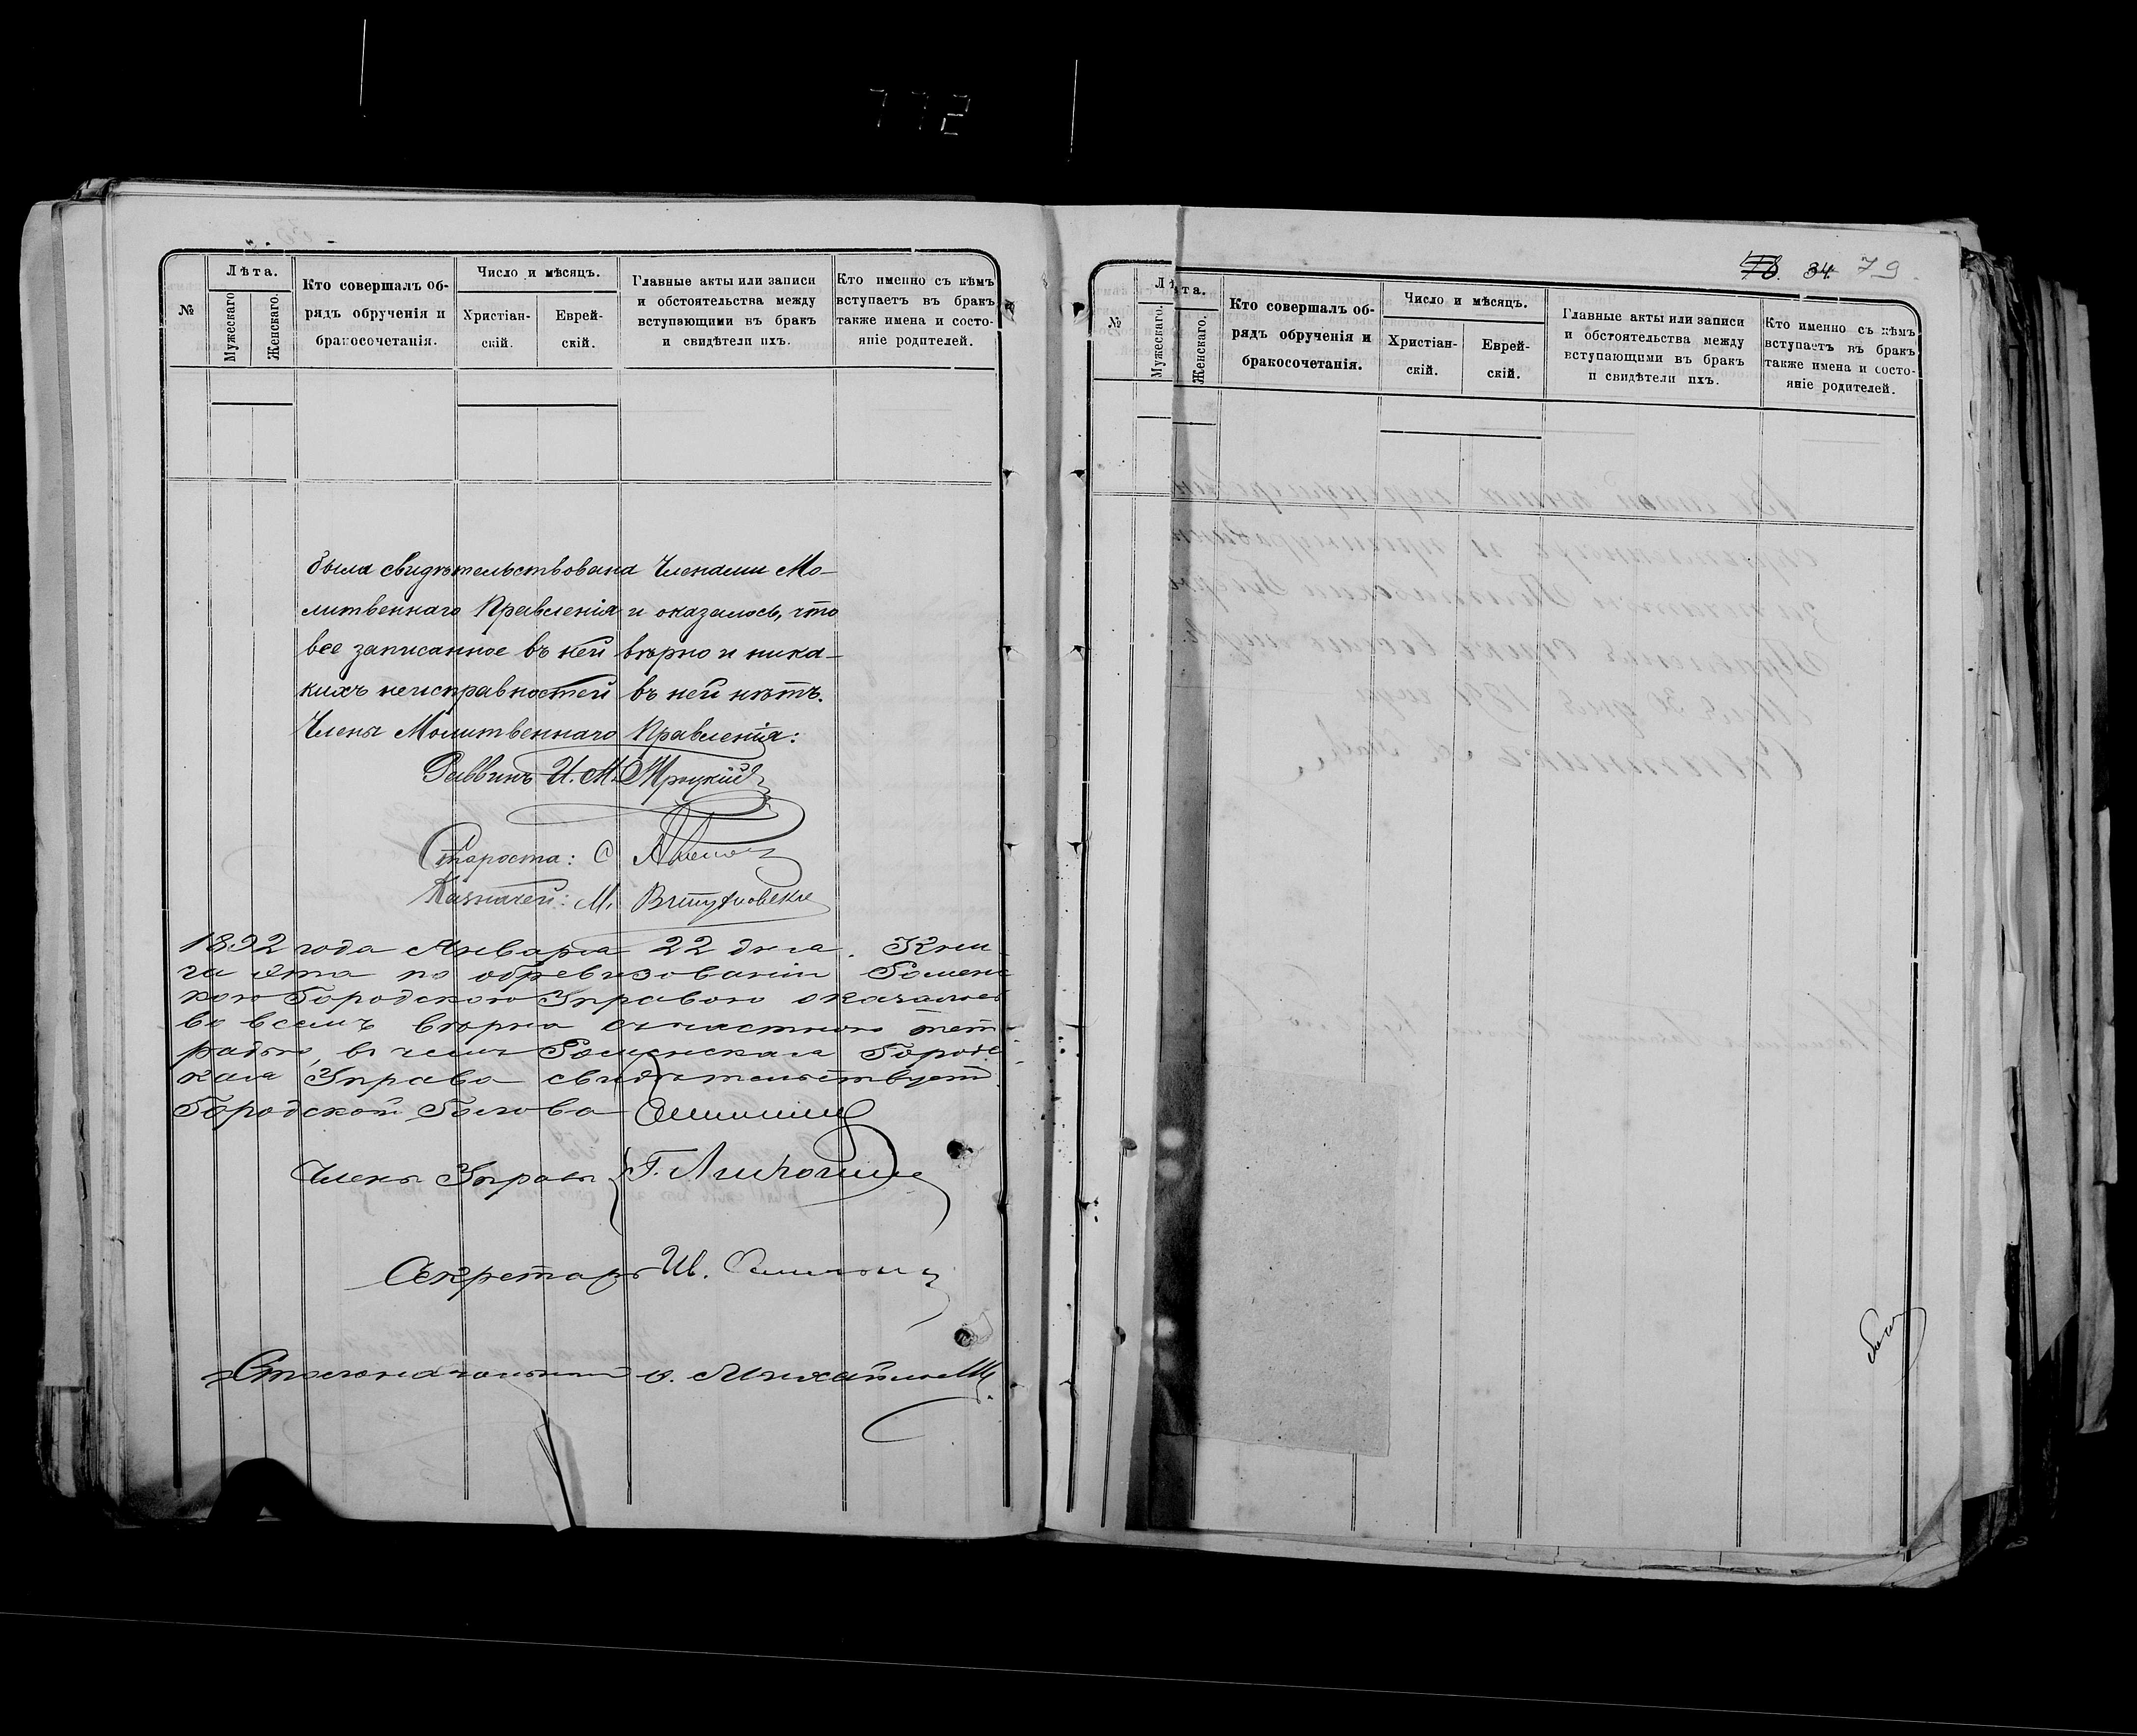 772
№
Лѣта.
Мужескаго
Женскаго.
Кто совершалъ об-
рядъ обрученія и
бракосочетанія.
Число и мѣсяцъ.
Христіан-
скій.
Еврей-
скій.
Главные акты или записи
и обстоятельства между
вступающими въ бракъ
и свидѣтели ихъ.
Кто именно съ кѣмъ
вступаетъ въ бракъ
также имена и состо-
яніе родителей.
была свидѣтельствована Членами Мо-
литвеннаго Правленія и оказалось, что
все записанное въ ней вѣрно и ника-
кихъ неисправностей въ ней нѣтъ.
Члены Молитвеннаго Правленія:
Раввинъ И. М.
Староста: С
Казначей: М.
1892 года Января 22 дня. Кни
га эта по обревизованіи Роменс
кою Городскою Управою оказалось
во всемъ вѣрна съ частною тет
радью, въ чемъ Роменская Городс
кая Управа свидѣтельствуетъ
Городской Голова
Члены Управы Г.
Секретарь
Столоначальникъ
34. 79
№
Лѣта.
Мужескаго.
Женскаго.
Кто совершалъ об-
рядъ обрученія и
бракосочетанія.
Число и мѣсяцъ.
Христіан-
скій.
Еврей-
скій.
Главные акты или записи
и обстоятельства между
вступающими въ бракъ
и свидѣтели ихъ.
Кто именно съ кѣмъ
вступаетъ въ бракъ
также имена и состо-
яніе родителей.